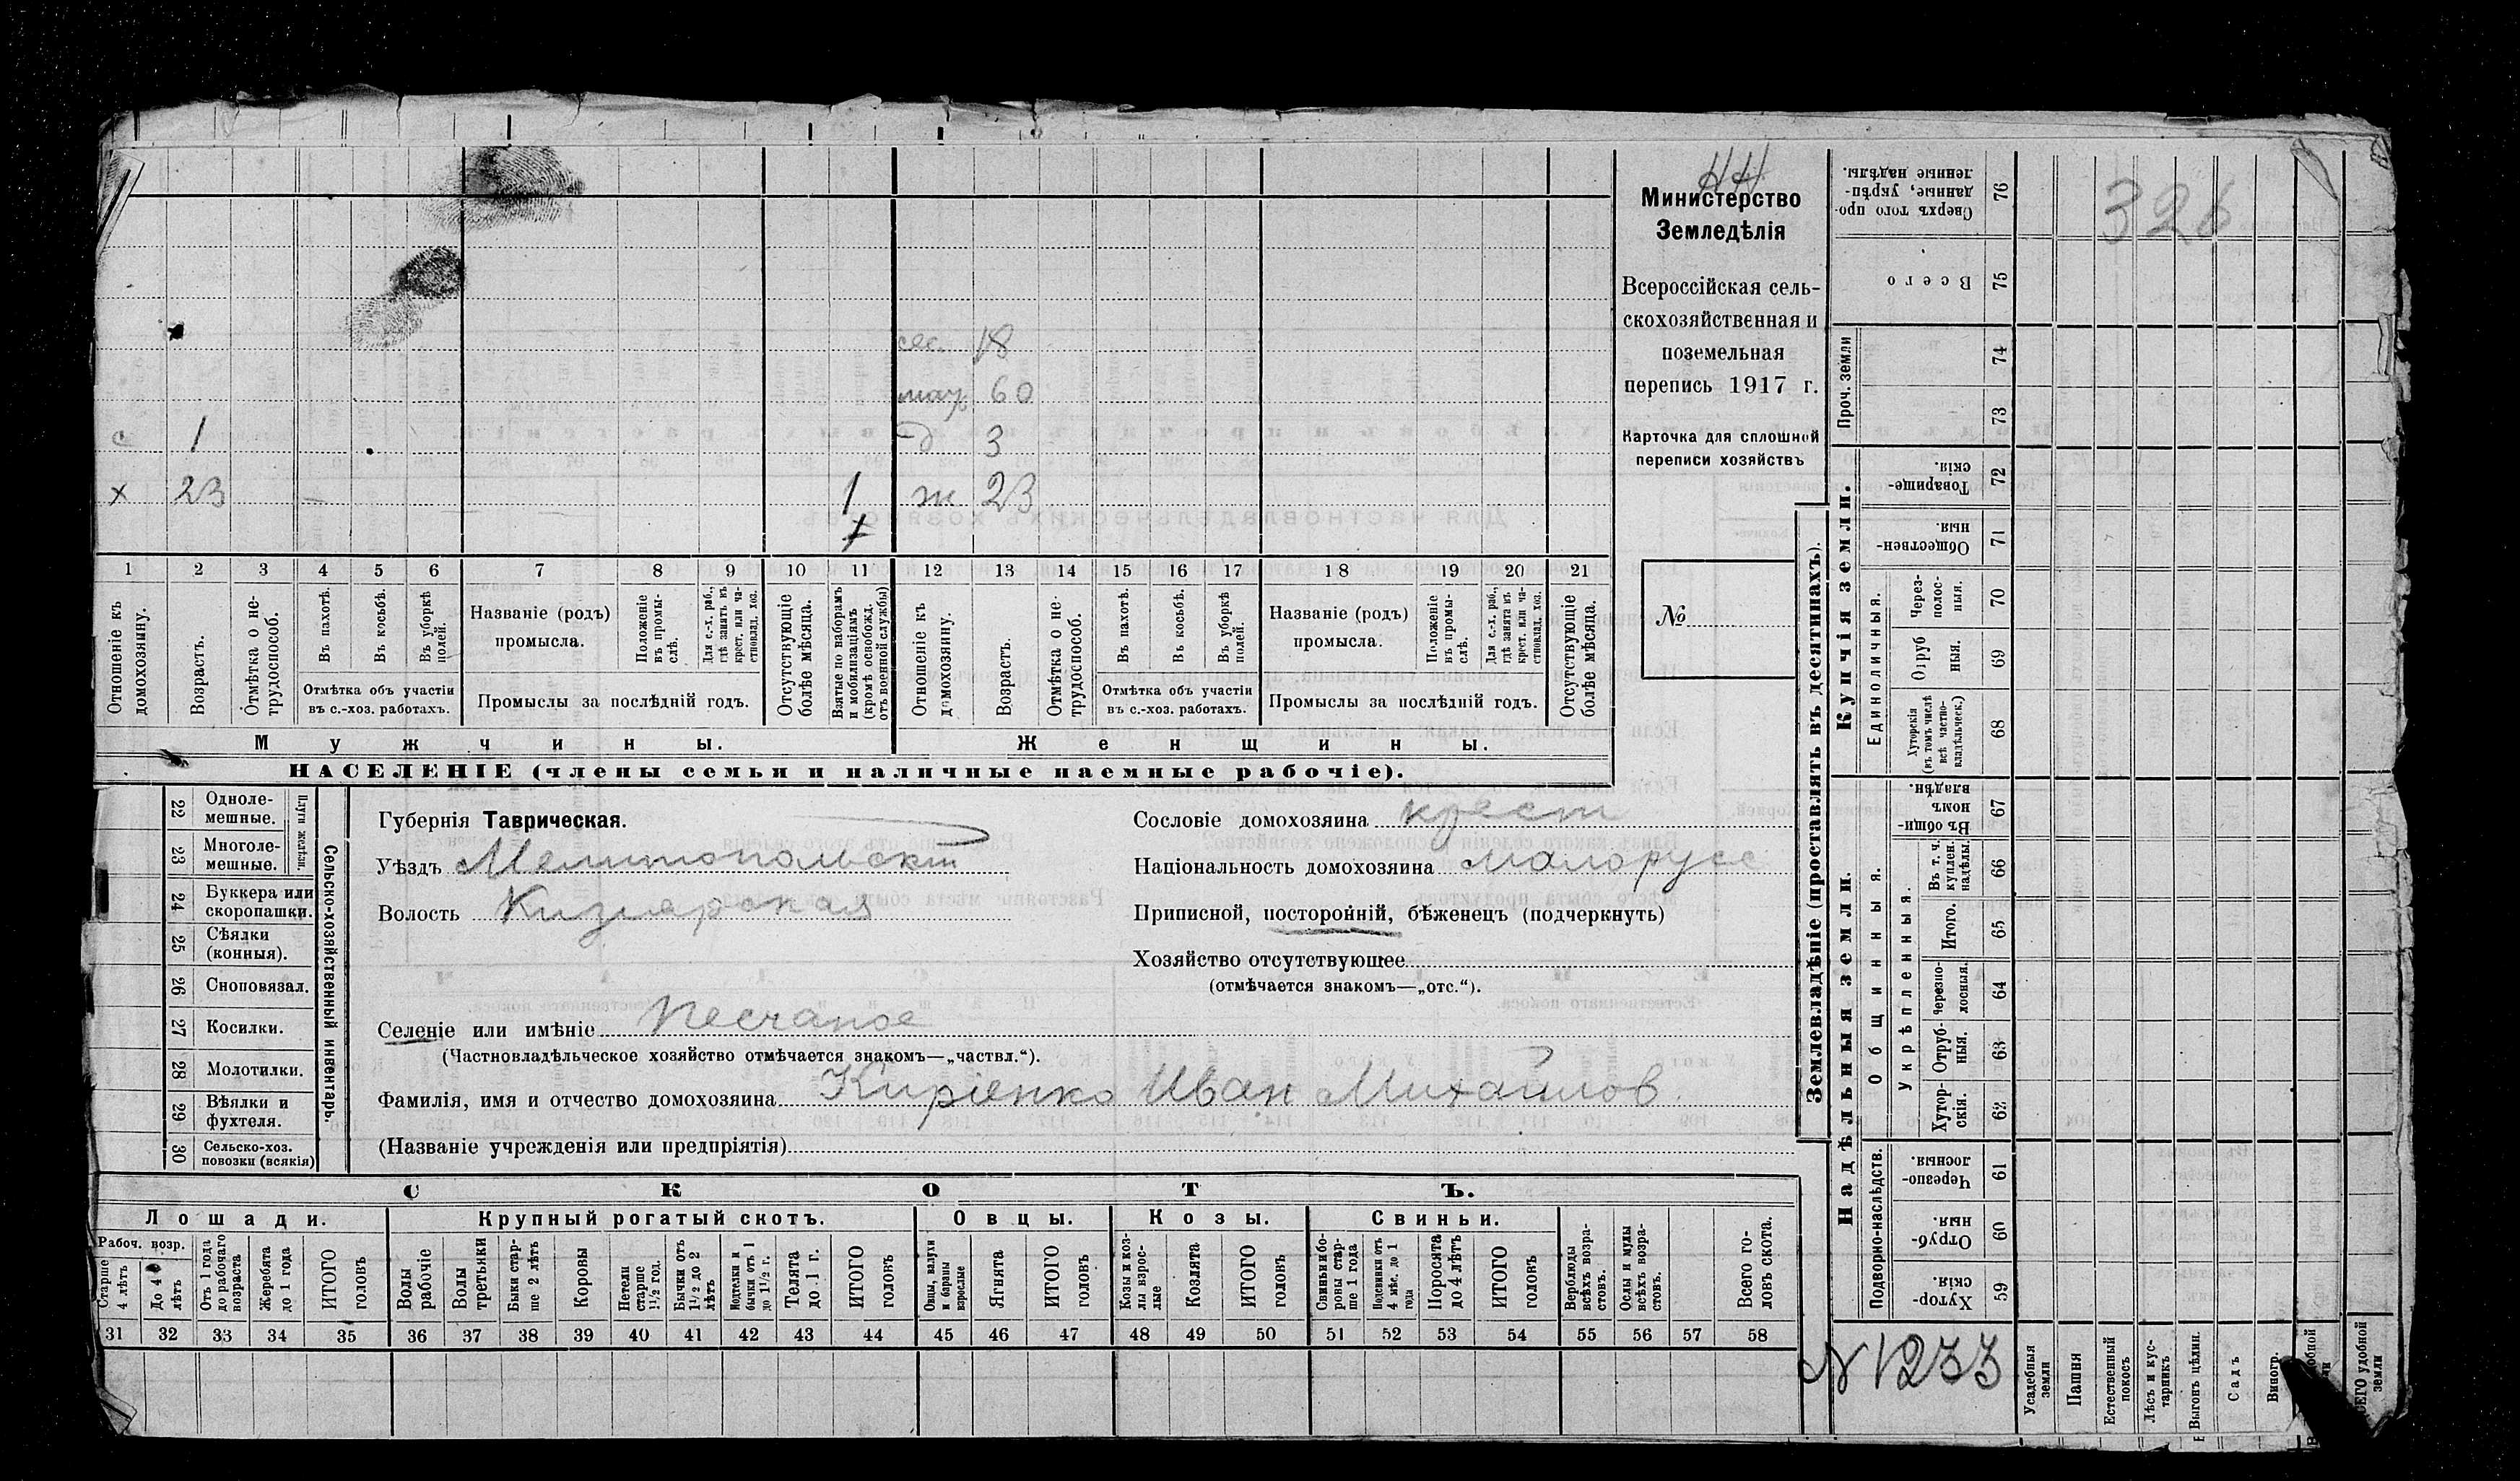 НН
Министерство
Земледѣлія
Всероссійская сель-
скохозяйственная и
поземельная
перепись 1917 г.
Карточка для сплошной
переписи хозяйствъ
№
326
сес. 18
мач. 60
с 1 д 3
х 23 1 ж 23
1 2 3 4 5 6 7 8 9 10 11 12 13 14 15 16 17 18 19 20 21
Отношеніе къ домохозяину.
Возрастъ.
Отмѣтка о не-трудоспособ.
Въ пахотѣ.
Въ косьбѣ.
Въ уборкѣ полей.
Отмѣтка объ участіи
въ с.-хоз. работахъ.
Названіе (родъ)
промысла.
Положеніе въ промы-слѣ.
Для с.-х. раб., гдѣ занятъ въ крест. или ча-стновлад. хоз.
Промыслы за послѣдній годъ.
Отсутствующіе болѣе мѣсяца.
Взятые по наборамъ и мобилизаціямъ (кромѣ освобожд. отъ военной службы)
Отношеніе къ домохозяину.
Возрастъ.
Отмѣтка о не-трудоспособ.
Въ пахотѣ.
Въ косьбѣ.
Въ уборкѣ полей.
Отмѣтка объ участіи
въ с.-хоз. работахъ.
Названіе (родъ)
промысла.
Положеніе въ промы-слѣ.
Для с.-х. раб., гдѣ занятъ въ крест. или ча-стновлад. хоз.
Промыслы за послѣдній годъ.
Отсутствующіе болѣе мѣсяца.
Мужчины.
Женщины.
НАСЕЛЕНІЕ (члены семьи и наличные наемные рабочіе).
22 Одноле-мешные.
23 Многоле-мешные.
Плуги желѣзн.
24 Буккера или скоропашки.
25 Сѣялки (конныя).
26 Сноповязал.
27 Косилки.
28 Молотилки.
29 Вѣялки и фухтеля.
30 Сельско-хоз. повозки (всякія)
Сельско-хозяйственный инвентарь.
Губернія Таврическая.
Уѣздъ Мелитопольскій
Волость Кизіярская
Селеніе или имѣніе Песчаное
(Частновладѣльческое хозяйство отмѣчается знакомъ—„частвл.“).
Фамилія, имя и отчество домохозяина Киріенко Иван Михайлов
(Названіе учрежденія или предпріятія)
Сословіе домохозяина крест
Національность домохозяина малорусс
Приписной, посторонній, бѣженецъ (подчеркнуть)
Хозяйство отсутствующее
(отмѣчается знакомъ—„отс.“).
СКОТЪ.
Лошади.
Крупный рогатый скотъ.
Овцы.
Козы.
Свиньи.
Рабоч. возр.
Старше 4 лѣтъ
До 4 лѣтъ
Отъ 1 года до рабочаго возраста
Жеребята до 1 года
ИТОГО головъ
Волы рабочіе
Волы третьяки
Быки стар-ше 2 лѣтъ
Коровы
Нетели старше 1½ год.
Бычки отъ 1½ до 2 лѣтъ
Подтелки и бычки отъ 1 до 1½ г.
Телята до 1 г.
ИТОГО головъ
Овцы, валухи и бараны взрослые
Ягнята
ИТОГО головъ
Козы и коз-лы взрос-лые
Козлята
ИТОГО головъ
Свиньи и бо-ровы стар-ше 1 года
Подсвинки отъ 4 мѣс. до 1 года
Поросята до 4 лѣтъ
ИТОГО головъ
Верблюды всѣхъ возра-стовъ.
Ослы и мулы всѣхъ возра-стовъ.
Всего го-ловъ скота.
31 32 33 34 35 36 37 38 39 40 41 42 43 44 45 46 47 48 49 50 51 52 53 54 55 56 57 58
Землевладѣніе (проставлять въ десятинахъ).
Купчія земли.
Надѣльныя земли.
Сверхъ того про-данные, укрѣп-ленные надѣлы. 76
Всего 75
Проч. земли 74
73
Товарище-скія. 72
Обществен-ныя. 71
Единоличныя.
Через-полос-ныя. 70
Отруб ныя. 69
Хуторскія (въ томъ числѣ всѣ частно-владѣльческ.) 68
Общинныя.
Въ общи-номъ владѣн. 67
Въ т. ч. куплен. надѣлы. 66
Укрѣпленныя.
Итого. 65
Черезпо-лосныя. 64
Отруб-ныя. 63
Хутор-скія. 62
Подворно-наслѣдств.
Черезпо-лосныя. 61
Отруб-ныя. 60
Хутор-скія. 59
N 1233
Усадебныя земли
Пашня
Естественный покосъ
Лѣсъ и кус-тарникъ
Выгонъ цѣлин.
Садъ
Виногр.
удобной земли